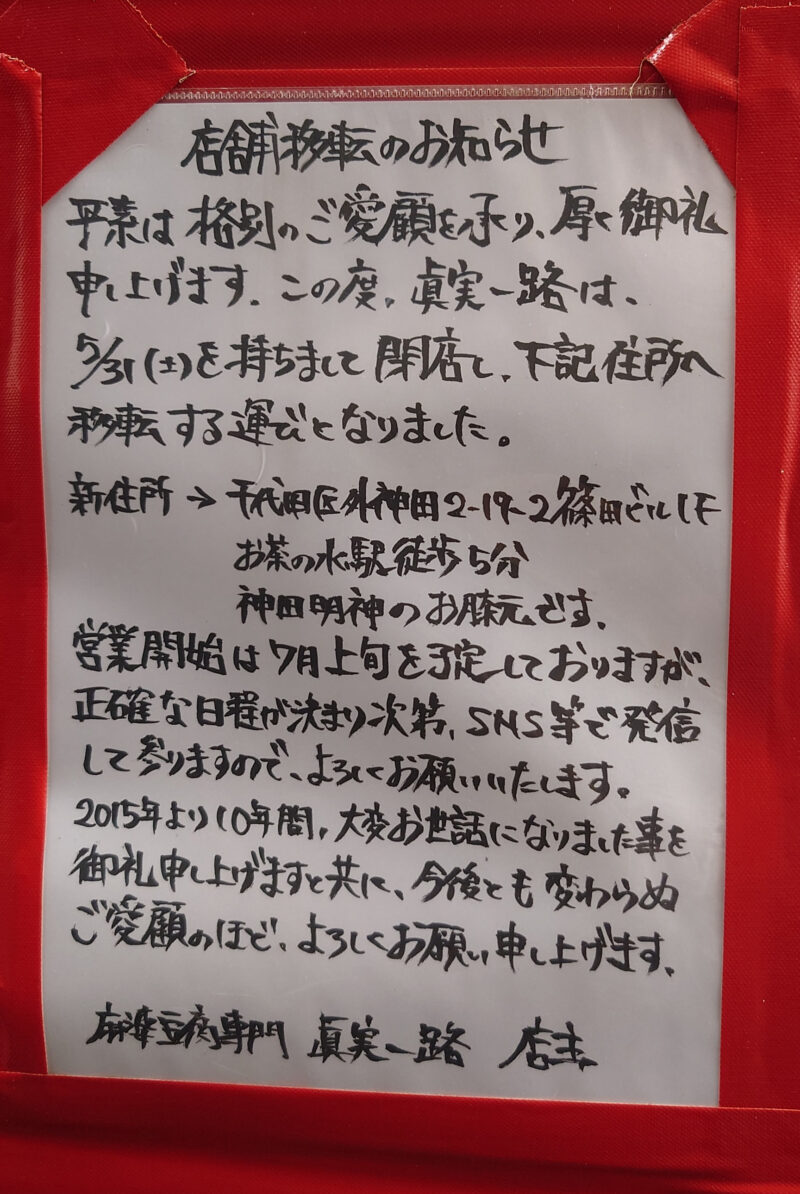 店舗移転のお知らせ
平素は格別のご愛顧を承り、厚く御礼
申し上げます。この度、眞実一路は、
5/31(土)を持ちまして閉店し、下記住所へ
移転する運びとなりました。
新住所→千代田区外神田2-19-2篠田ビル1F
お茶の水駅徒歩5分
神田明神のお膝元です。
営業開始は7月上旬を予定しておりますが、
正確な日程が決まり次第、SNS等で発信
して参りますので、よろしくお願いいたします。
2015年より10年間、大変お世話になりました事を
御礼申し上げますと共に、今後とも変わらぬ
ご愛顧のほど、よろしくお願い申し上げます。
麻婆豆腐専門 眞実一路 店主